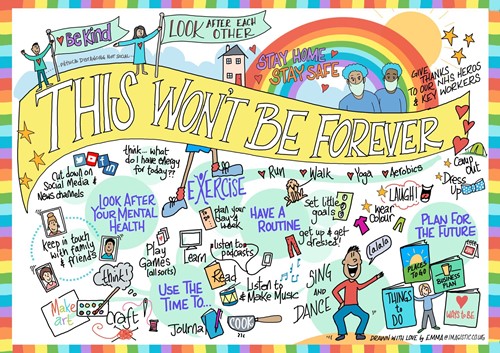 Be Kind
LOOK AFTER EACH
OTHER
PHYSICAL DISTANCING NOT SOCIAL
STAY HOME
STAY SAFE
GIVE
THANKS
TO OUR NHS HEROS
& KEY WORKERS
THIS WON'T BE FOREVER
Cut down on
Social Media &
News channels
think... what
do I have energy
for today??
EXERCISE
Run
Walk
Yoga
Aerobics
Camp
out
Dress
Up
LAUGH!
wear
Colour
LOOK AFTER
YOUR MENTAL
HEALTH
plan your
day &
week
HAVE A
ROUTINE
Set little
goals
get up & get
dressed!
PLAN FOR
THE FUTURE
Keep in touch
with family
& friends
think
Play
Games
(all sorts)
Learn
listen to
podcasts
Read
Listen to
& Make Music
SING
AND
DANCE
lalala
Make
art
Craft
USE THE
TIME TO...
Journal
COOK
PLACES
TO GO
BUSINESS
PLAN
THINGS
to
DO
WAYS TO BE
DRAWN WITH LOVE by EMMA @IMAGISTIC.CO.UK